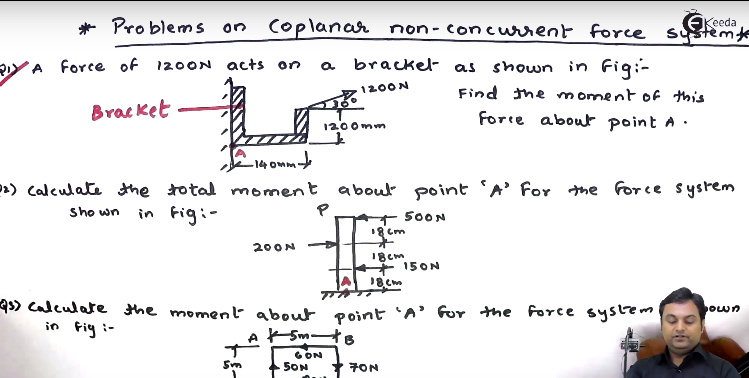 * Problems on Coplanar non-concurrent force system
Ekeeda
Q1) A force of 1200N acts on a bracket as shown in fig:-
Find the moment of this
force about point A.
Bracket
1200N
30°
1200mm
A
140mm
2) Calculate the total moment about point 'A' for the force system
shown in fig:-
P
500N
18cm
200N
18cm
150N
A
18cm
Q3) Calculate the moment about point 'A' for the force system
in fig:-
A
5m
B
60N
5m
50N
70N